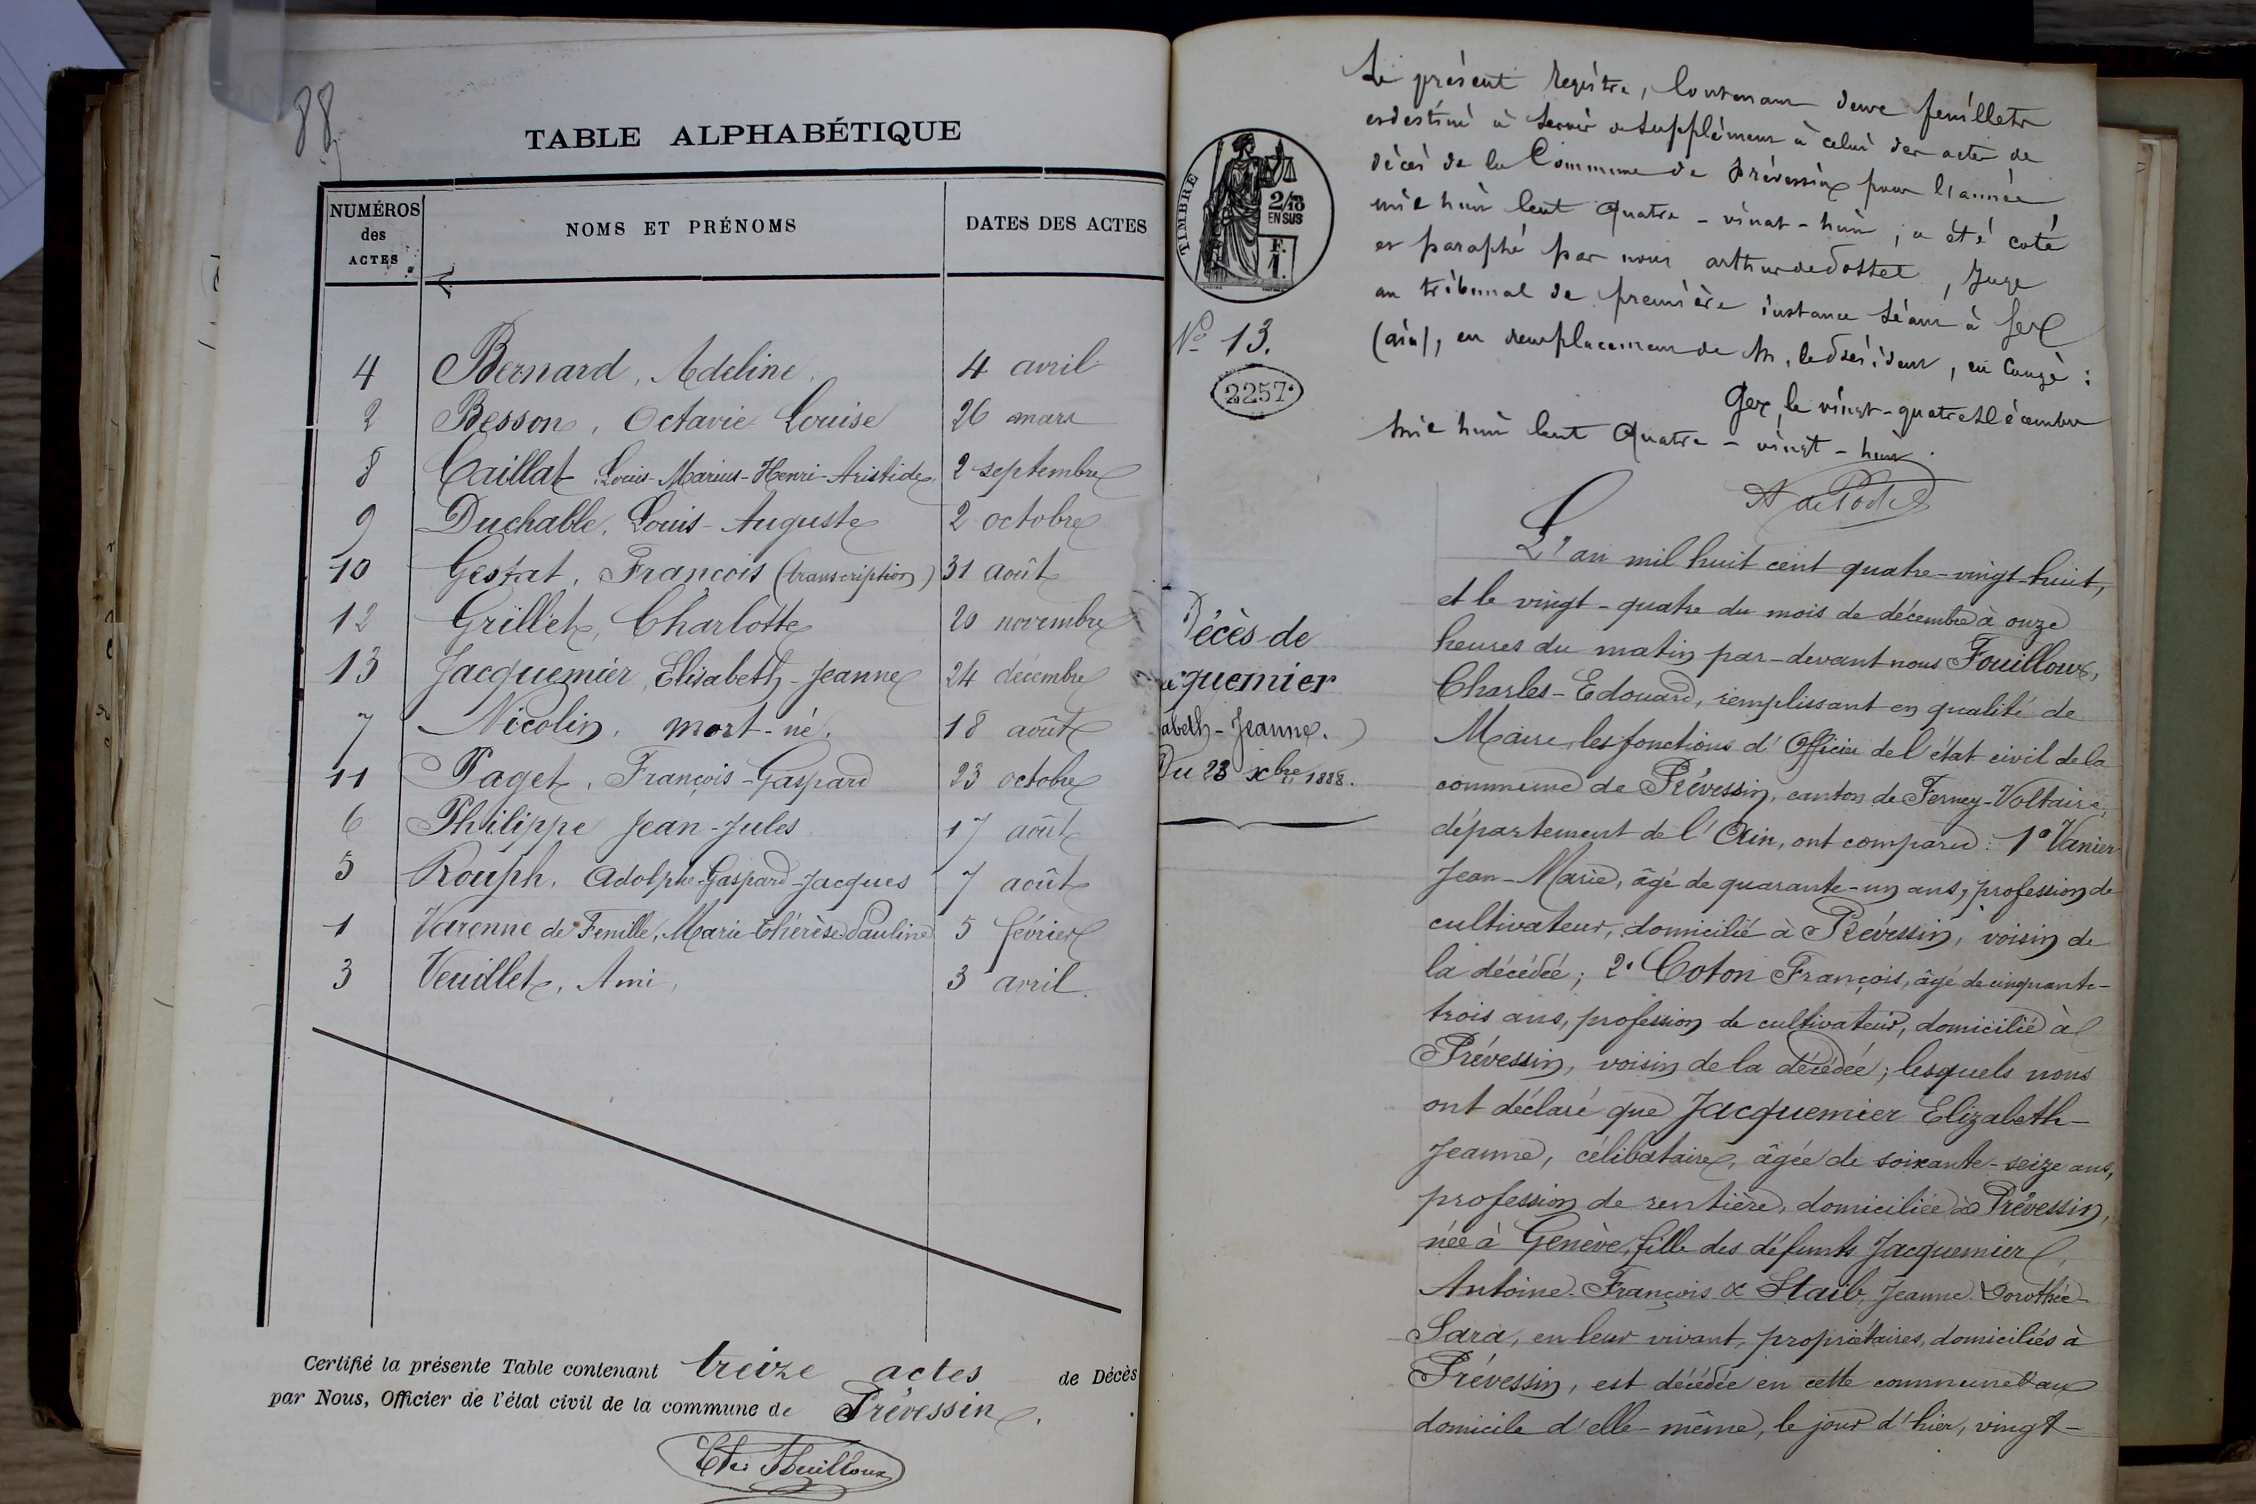 88
TABLE ALPHABÉTIQUE
NUMÉROS des ACTES
NOMS ET PRÉNOMS
DATES DES ACTES
4 Bernard, Adeline 4 avril
2 Besson, Octavie Louise 26 mars
8 Caillat, Louis-Marius-Henri-Aristide 2 septembre
9 Duchable, Louis-Auguste 2 octobre
10 Gestat, François (transcription) 31 août
12 Grillet, Charlotte 20 novembre
13 Jacquemier, Elisabeth-Jeanne 24 décembre
7 Nicolin, mort-né. 18 août
11 Paget, François-Gaspard 23 octobre
6 Philippe Jean-Jules 17 août
5 Rouph, Adolphe-Gaspard-Jacques 7 août
1 Varenne de Fenille, Marie-Thérèse Pauline 5 février
3 Veuillet, Ami, 3 avril.
Certifié la présente Table contenant treize actes de Décès
par Nous, Officier de l'état civil de la commune de Prévessin.
Ch. Fouilloux
TIMBRE
2/10
EN SUS
F.
1.
No 13.
2257
Décès de
quemier
abeth-Jeanne.
Du 23 xbre 1888.
Le présent Registre, contenant deux feuillets
et destiné à servir de supplément à celui des actes de
décès de la Commune de Prévessin pour l'année
mil huit cent quatre-vingt-huit, a été coté
et paraphé par nous Arthur de Postel, Juge
au tribunal de première instance séant à Gex
(ain), en remplacement de M. le Président, en congé :
Gex, le vingt-quatre Décembre
mil huit cent quatre-vingt-huit.
A de Postel
L'an mil huit cent quatre-vingt-huit,
et le vingt-quatre du mois de décembre à onze
heures du matin par-devant nous Fouilloux,
Charles-Edouard, remplissant en qualité de
Maire, les fonctions d'Officier de l'état civil de la
commune de Prévessin, canton de Ferney-Voltaire,
département de l'Ain, ont comparu : 1° Vanier
Jean-Marie, âgé de quarante-un ans, profession de
cultivateur, domicilié à Prévessin, voisin de
la décédée; 2° Coton François, âgé de cinquante-
trois ans, profession de cultivateur, domicilié à
Prévessin, voisin de la décédée; lesquels nous
ont déclaré que Jacquemier Elizabeth-
Jeanne, célibataire, âgée de soixante-seize ans,
profession de rentière, domiciliée à Prévessin,
née à Genève, fille des défunts Jacquemier,
Antoine-François & Staib, Jeanne-Dorothée-
Sara, en leur vivant, propriétaires, domiciliés à
Prévessin, est décédée en cette commune & au
domicile d'elle-même, le jour d'hier, vingt-